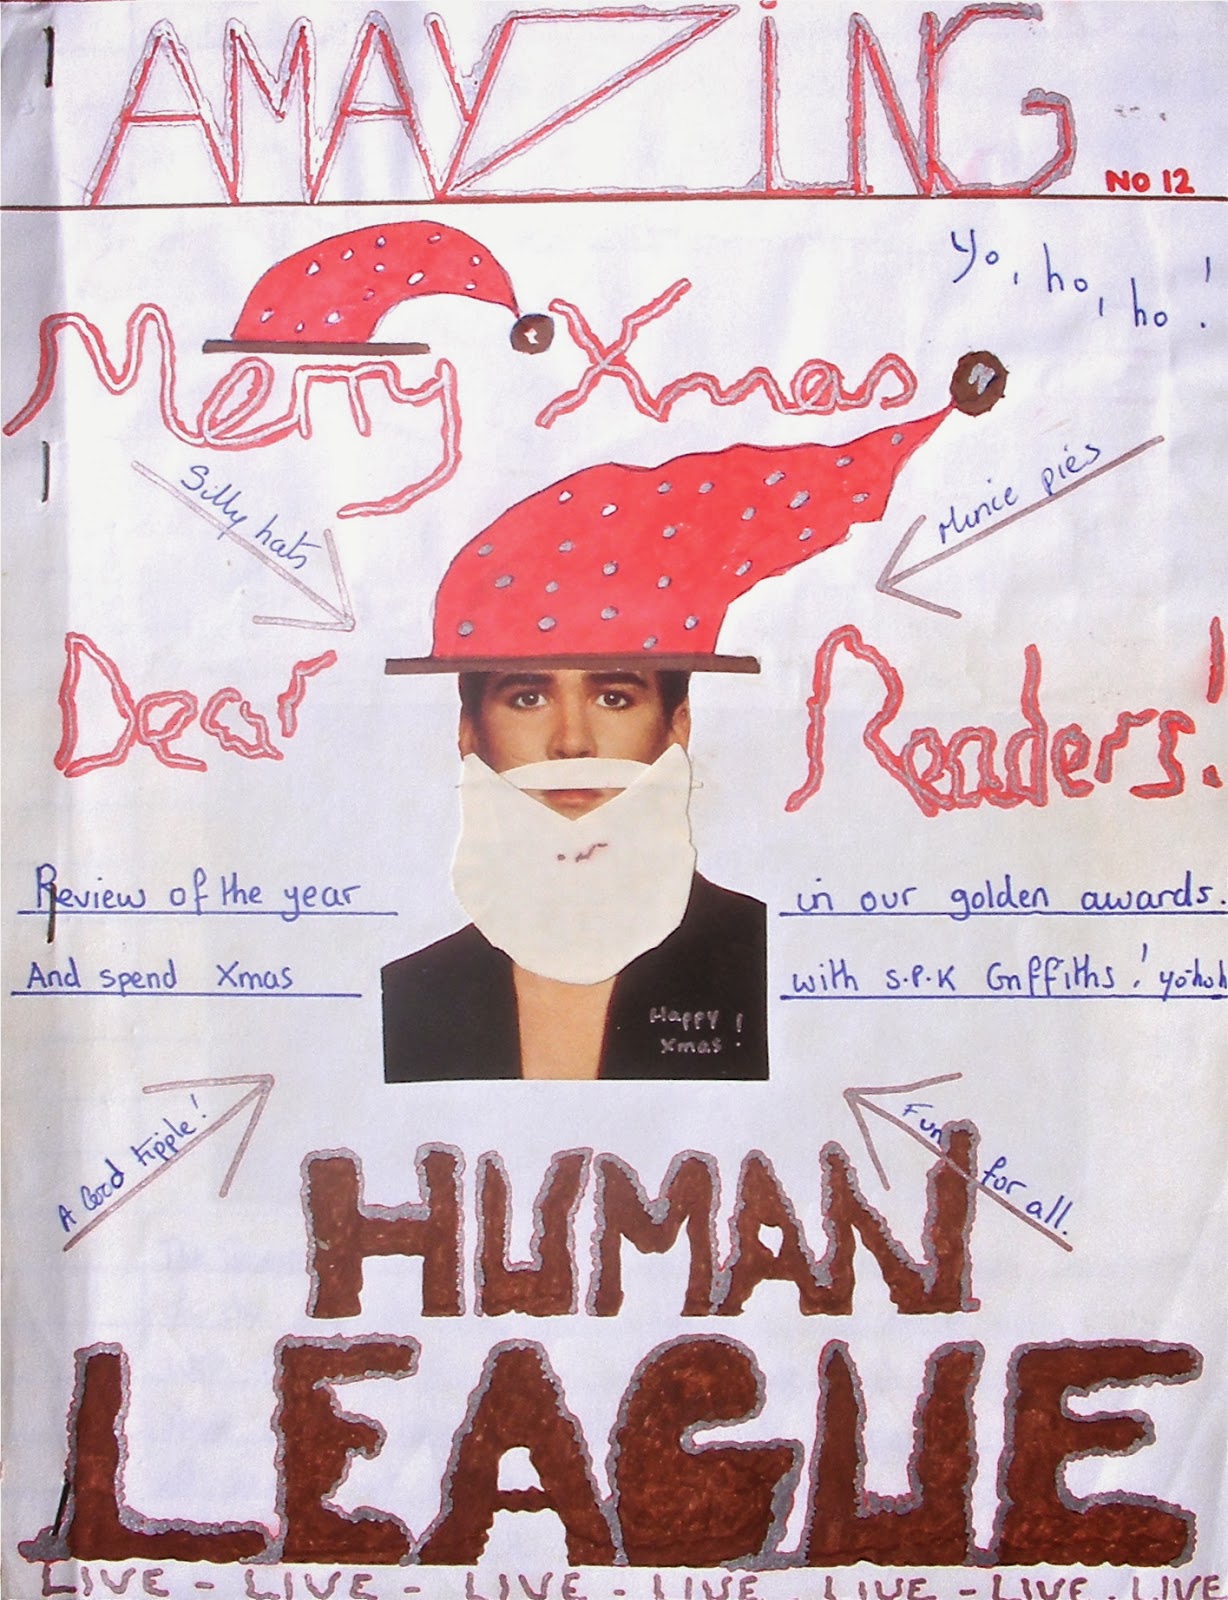 AMAYZiNG
NO 12
Yo, ho, ho!
Merry Xmas
Silly hats
Mince pies
Dear Readers!
Review of the year in our golden awards.
And spend Xmas with S.P.K Griffiths! yo-hoh
Happy Xmas!
A Good tipple!
Fun for all.
HUMAN
LEAGUE
LIVE - LIVE - LIVE - LIVE LIVE - LIVE. LIVE